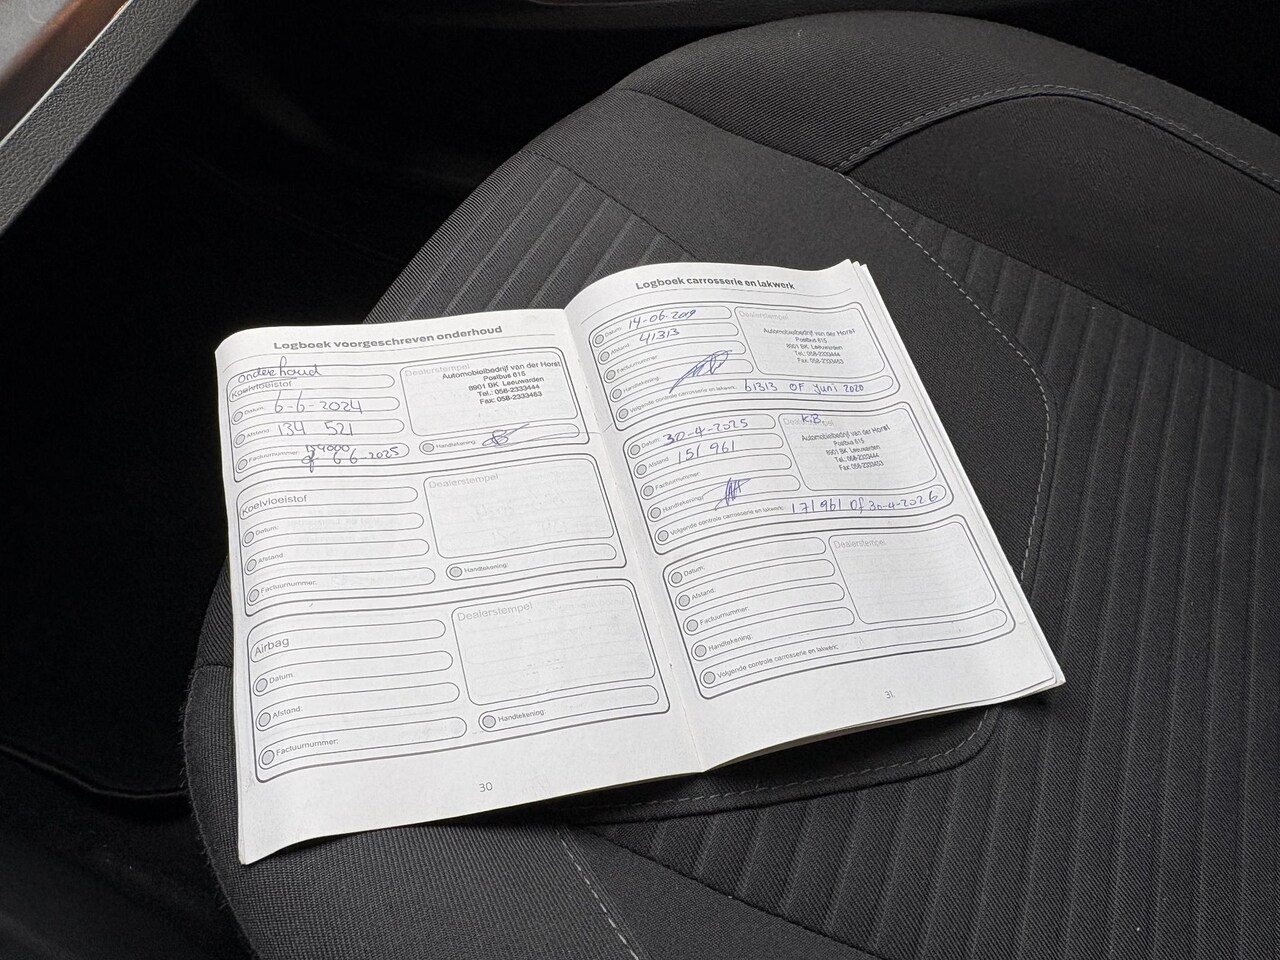 Logboek voorgeschreven onderhoud
onderhoud
Koelvloeistof
Datum: 6-6-2024
Afstand: 134 521
Factuurnummer: 154000
of 6-6-2025
Dealerstempel
Automobielbedrijf van der Horst
Postbus 615
8901 BK Leeuwarden
Tel.: 058-2333444
Fax: 058-2333453
Handtekening:
Koelvloeistof
Datum:
Afstand:
Factuurnummer:
Dealerstempel
Handtekening:
Airbag
Datum:
Afstand:
Factuurnummer:
Dealerstempel
Handtekening:
30
Logboek carrosserie en lakwerk
Datum: 14-06-2019
Afstand: 41313
Factuurnummer:
Handtekening:
Volgende controle carrosserie en lakwerk: 61313 OF juni 2020
Dealerstempel
Automobielbedrijf van der Horst
Postbus 615
8901 BK Leeuwarden
Tel.: 058-2333444
Fax: 058-2333453
Datum: 30-4-2025
Afstand: 151 961
Factuurnummer:
Handtekening:
Volgende controle carrosserie en lakwerk: 171961 of 30-4-2026
Dealerstempel
K.B.
Automobielbedrijf van der Horst
Postbus 615
8901 BK Leeuwarden
Tel.: 058-2333444
Fax: 058-2333453
Datum:
Afstand:
Factuurnummer:
Handtekening:
Volgende controle carrosserie en lakwerk:
Dealerstempel
31